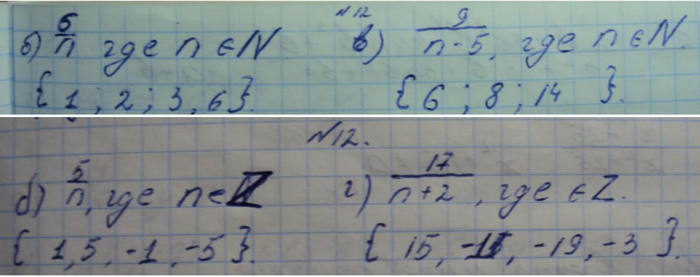 №12
б) 6/n где n ∈ N в) 9/n-5, где n ∈ N.
{ 1 ; 2 ; 3, 6 }. { 6 ; 8 ; 14 }.
№12.
б) 5/n, где n ∈ Z г) 17/n+2, где ∈ Z.
{ 1, 5, -1, -5 }. { 15, -1, -19, -3 }